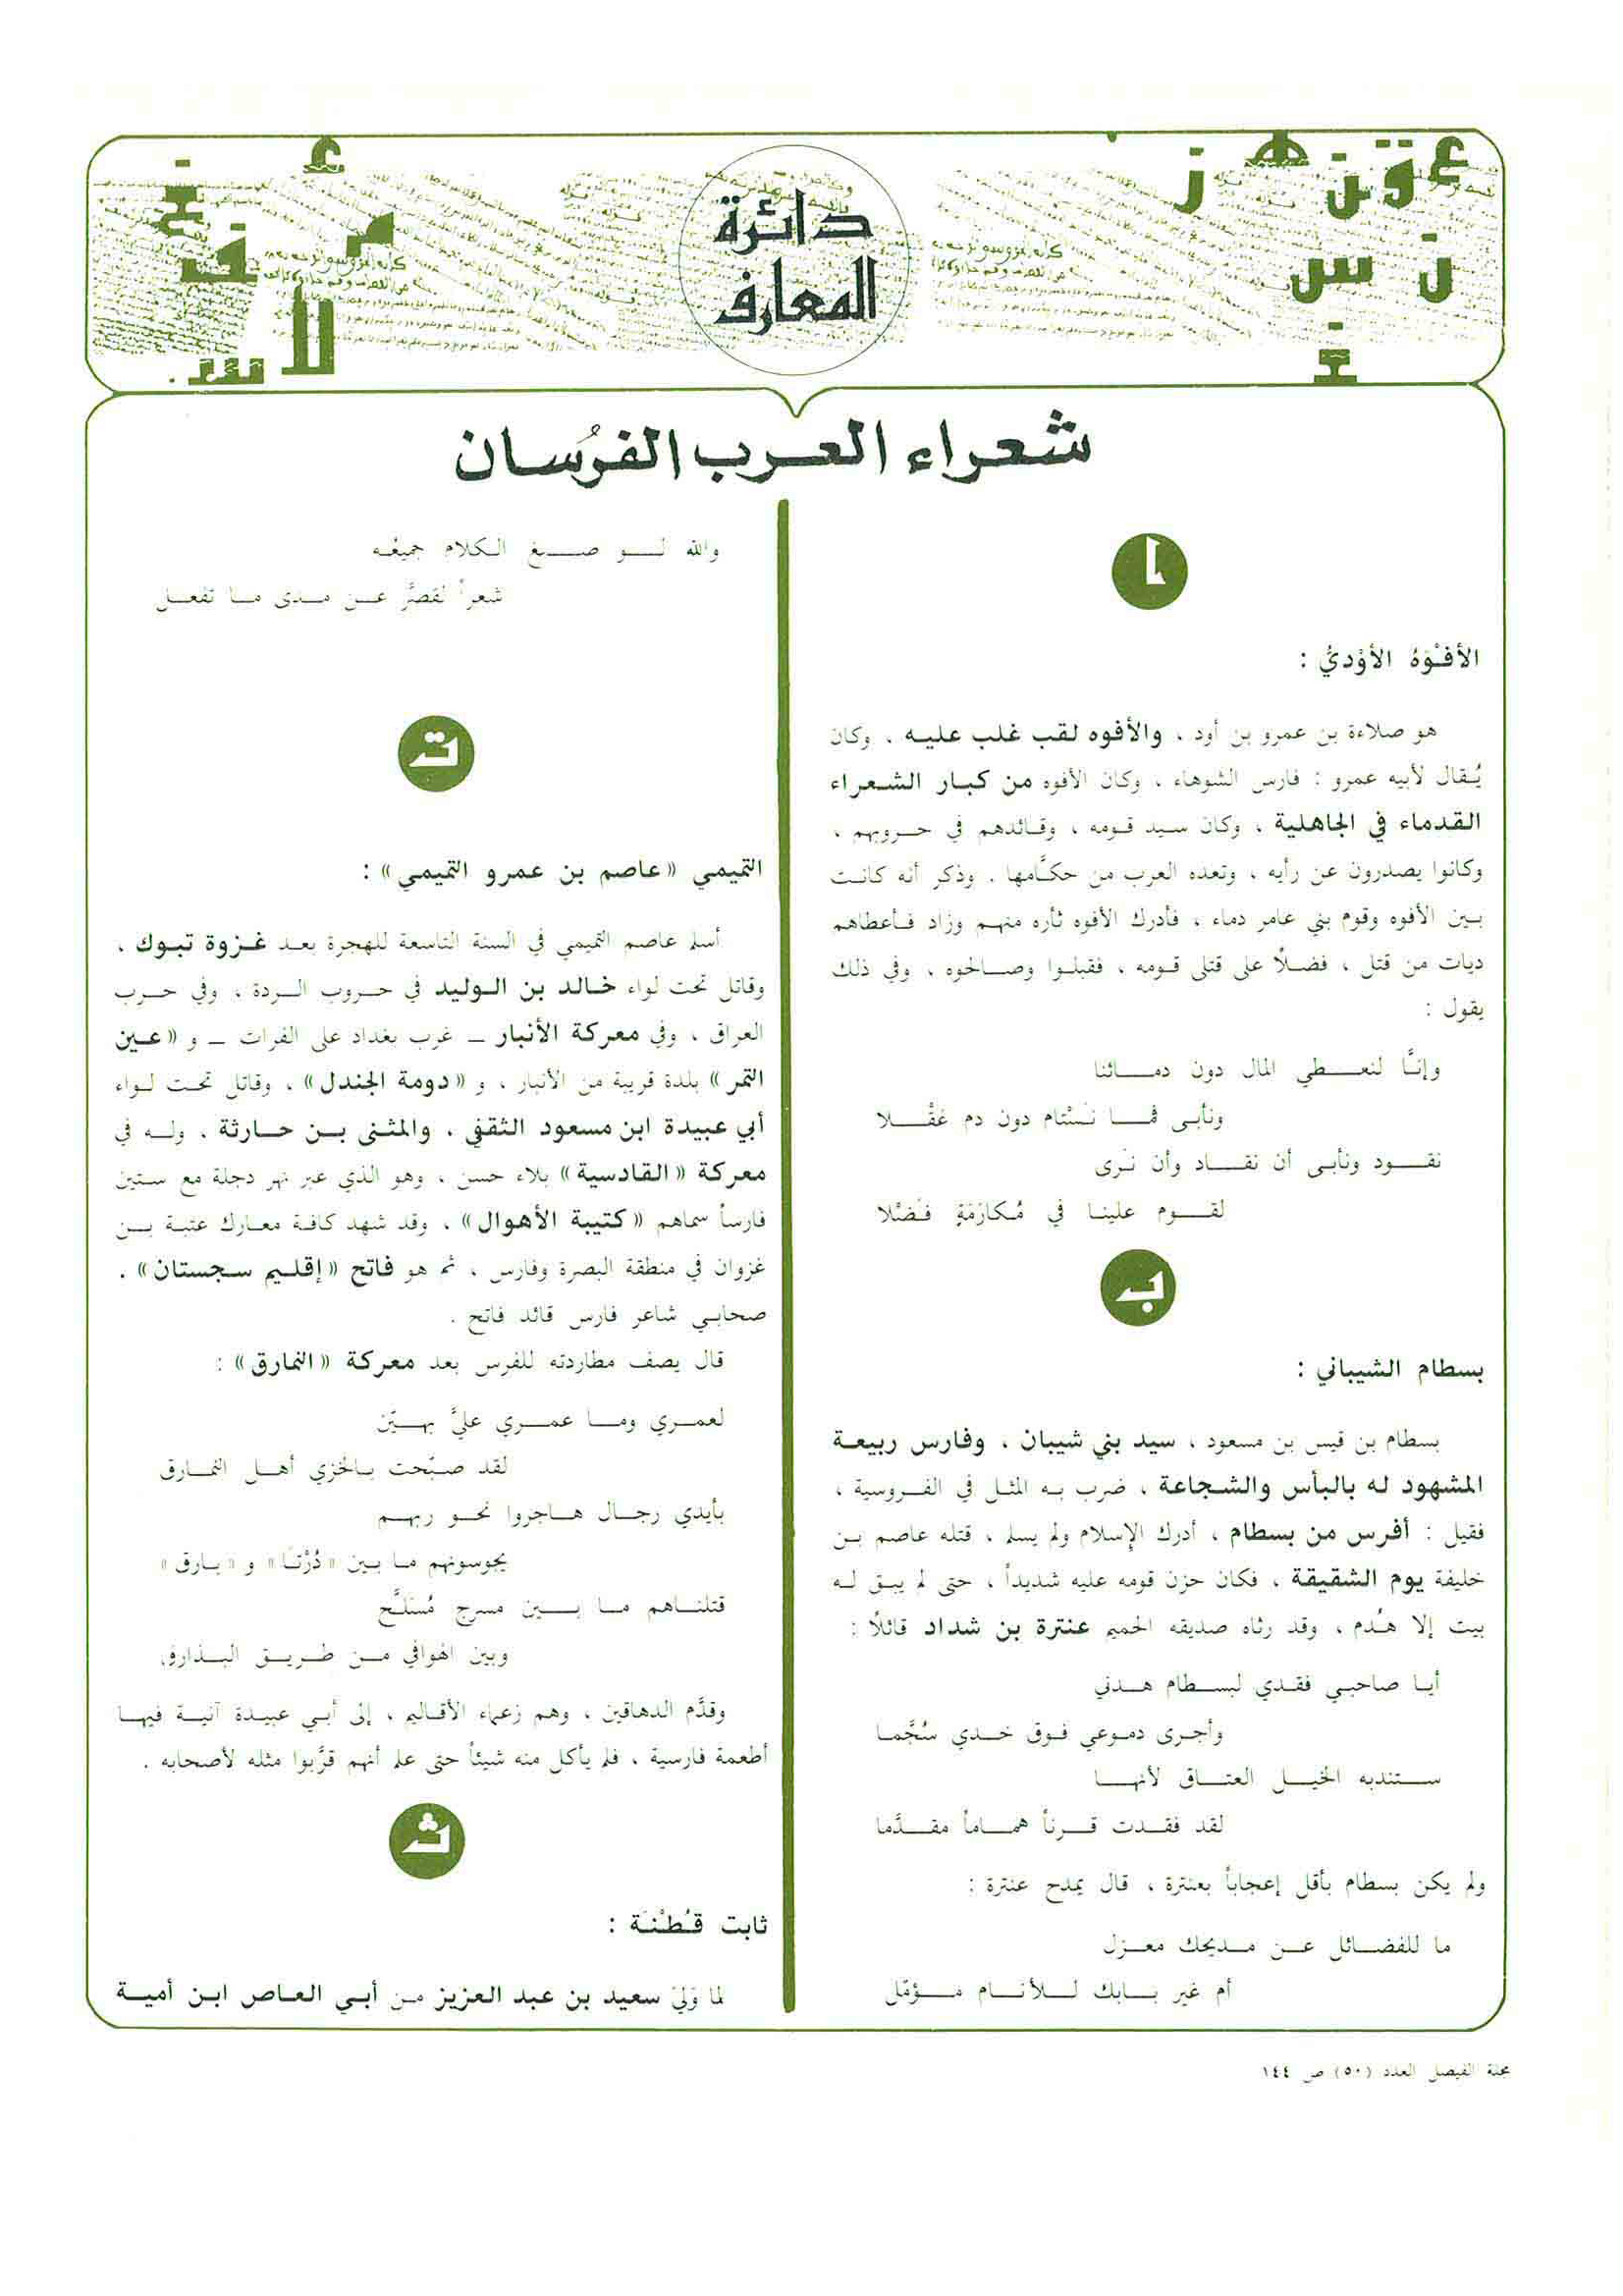 دائرة
المعارف
شعراء العرب الفُرسان
أ
الأفْوَهُ الأوْديُّ :
هو صلاءة بن عمرو بن أود ، والأفوه لقب غلب عليه . وكان
يُقال لأبيه عمرو : فارس الشوهاء ، وكان الأفوه من كبار الشعراء
القدماء في الجاهلية ، وكان سيد قومه ، وقائدهم في حروبهم ،
وكانوا يصدرون عن رأيه ، وتعده العرب من حكَّامها . وذكر أنه كانت
بين الأفوه وقوم بني عامر دماء ، فأدرك الأفوه ثأره منهم وزاد فأعطاهم
ديات من قتل ، فضلًا على قتلى قومه ، فقبلوا وصالحوه ، وفي ذلك
يقول :
وإنَّا لنعطي المال دون دمائنا
ونأبى فما نَسْتام دون دم عَقْلا
نقود ونأبى أن نقاد وأن نَرى
لقوم علينا في مُكارَمَةٍ فَضْلا
ب
بسطام الشيباني :
بسطام بن قيس بن مسعود ، سيد بني شيبان ، وفارس ربيعة
المشهود له بالبأس والشجاعة ، ضرب به المثل في الفروسية ،
فقيل : أفرس من بسطام ، أدرك الإسلام ولم يسلم ، قتله عاصم بن
خليفة يوم الشقيقة ، فكان حزن قومه عليه شديداً ، حتى لم يبق له
بيت إلا هُدم ، وقد رثاه صديقه الحميم عنترة بن شداد قائلًا :
أيا صاحبي فقدي لبسطام هدني
وأجرى دموعي فوق خدي سُجَّما
ستندبه الخيل العتاق لأنها
لقد فقدت قرناً هماماً مقدَّما
ولم يكن بسطام بأقل إعجاباً بعنترة ، قال يمدح عنترة :
ما للفضائل عن مديحك معزل
أم غير بابك للأنام مؤمّل
والله لو صيغ الكلام جميعُه
شعراً لقصَّر عن مدى ما تفعل
ت
التميمي «عاصم بن عمرو التميمي» :
أسلم عاصم التميمي في السنة التاسعة للهجرة بعد غزوة تبوك ،
وقاتل تحت لواء خالد بن الوليد في حروب الردة ، وفي حرب
العراق ، وفي معركة الأنبار ـ غرب بغداد على الفرات ـ و «عين
التمر» بلدة قريبة من الأنبار ، و «دومة الجندل» ، وقاتل تحت لواء
أبي عبيدة ابن مسعود الثقفي ، والمثنى بن حارثة ، وله في
معركة «القادسية» بلاء حسن ، وهو الذي عبر نهر دجلة مع ستين
فارساً سماهم «كتيبة الأهوال» ، وقد شهد كافة معارك عتبة بن
غزوان في منطقة البصرة وفارس ، ثم هو فاتح «إقليم سجستان» .
صحابي شاعر فارس قائد فاتح .
قال يصف مطاردته للفرس بعد معركة «النمارق» :
لعمري وما عمري عليَّ بهيّن
لقد صبّحت بالخزي أهل النمارق
بأيدي رجال هاجروا نحو ربهم
يجوسونهم ما بين «دُرْتَا» و «بارق»
قتلناهم ما بين مسرج مُسَلَّح
وبين الهوافي من طريق البذارق
وقدَّم الدهاقين ، وهم زعماء الأقاليم ، إلى أبي عبيدة آنية فيها
أطعمة فارسية ، فلم يأكل منه شيئاً حتى علم أنهم قرَّبوا مثله لأصحابه .
ث
ثابت قُطْنَة :
لما وَليَ سعيد بن عبد العزيز من أبي العاص ابن أمية
مجلة الفيصل العدد (٥٠) ص ١٤٤